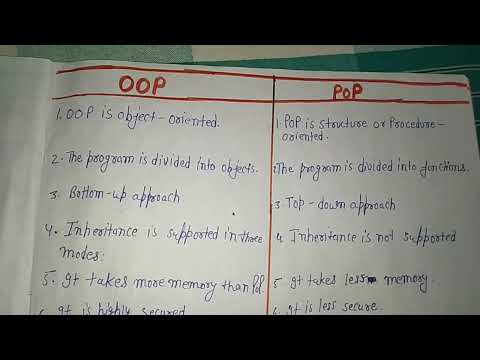 OOP
1. OOP is object-oriented.
2. The program is divided into objects.
3. Bottom-up approach
4. Inheritance is supported in three
modes:
5. It takes more memory than
6. It is highly secured
POP
1 POP is structure or Procedure-
oriented.
2. The program is divided into functions.
3 Top-down approach
4 Inheritance is not supported
5 It takes less memory.
6. It is less secure.